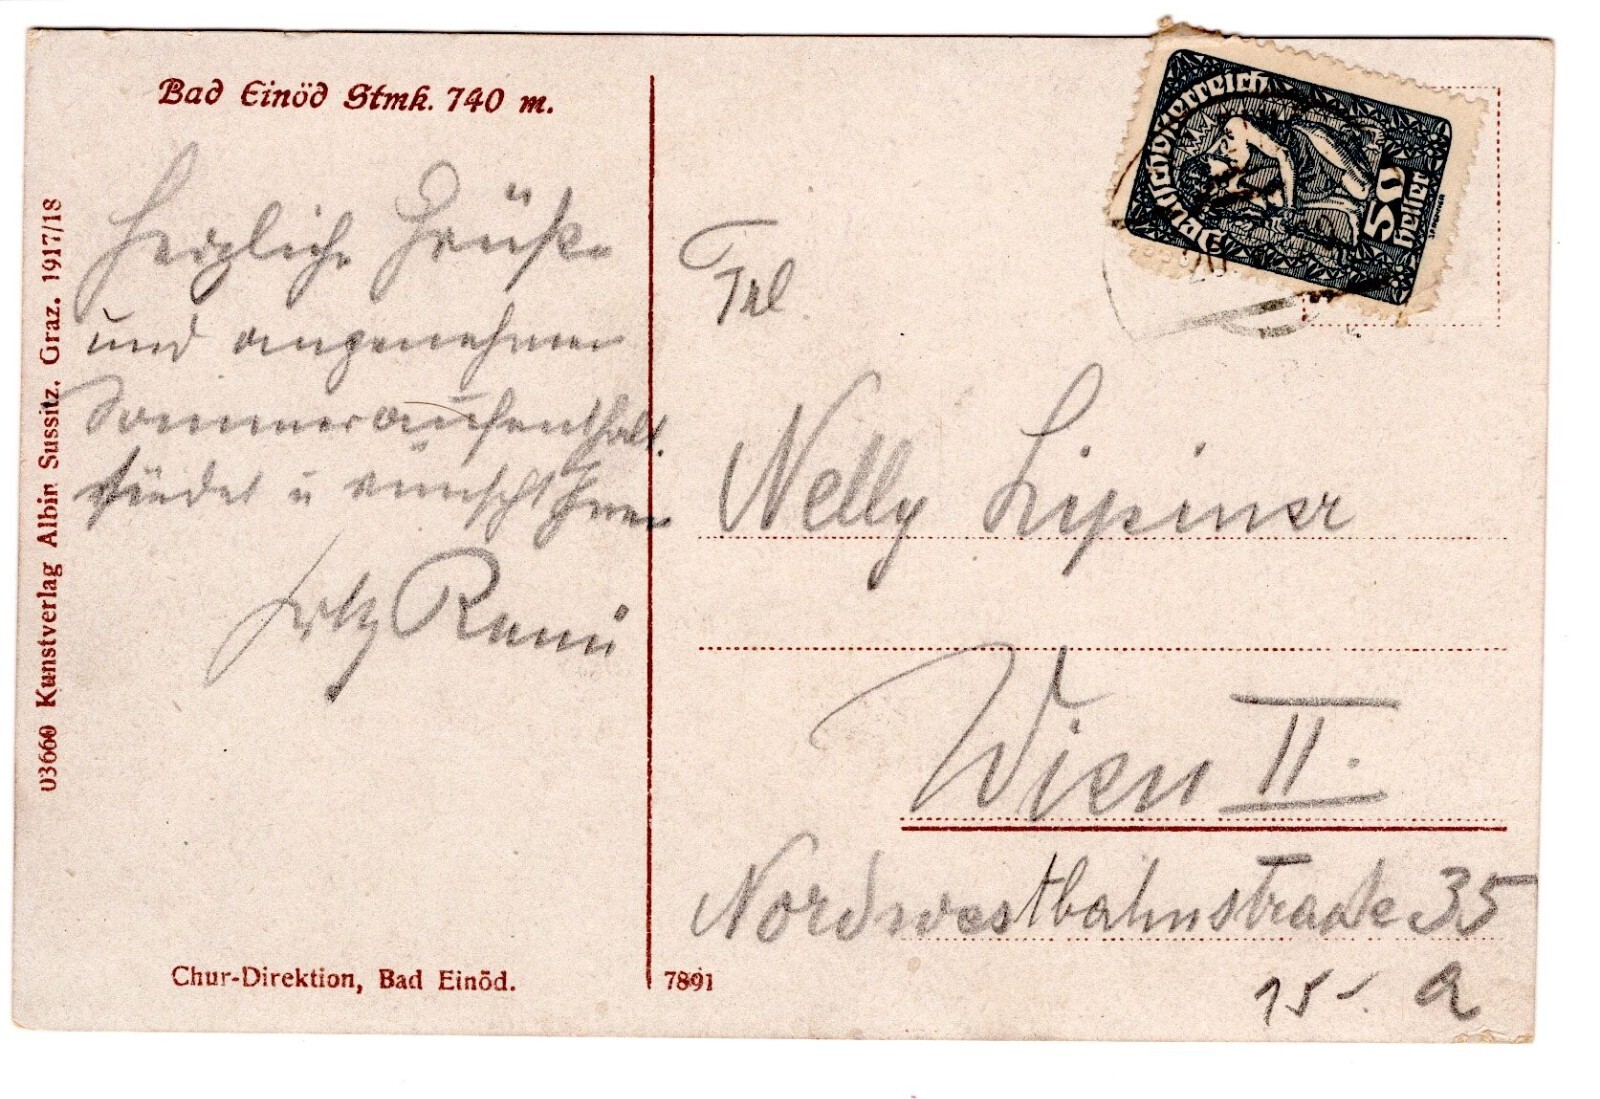 Bad Einöd Stmk. 740 m.
Herzliche Grüße
und angenehmen
Sommeraufenthalt
sendet u wünscht Ihnen
Fritz
03660 Kunstverlag Albin Sussitz, Graz. 1917/18
Chur-Direktion, Bad Einöd.
7891
Deutschösterreich
50
heller
Frl.
Nelly Lipiner
Wien II.
Nordwestbahnstraße 35
15 -. a